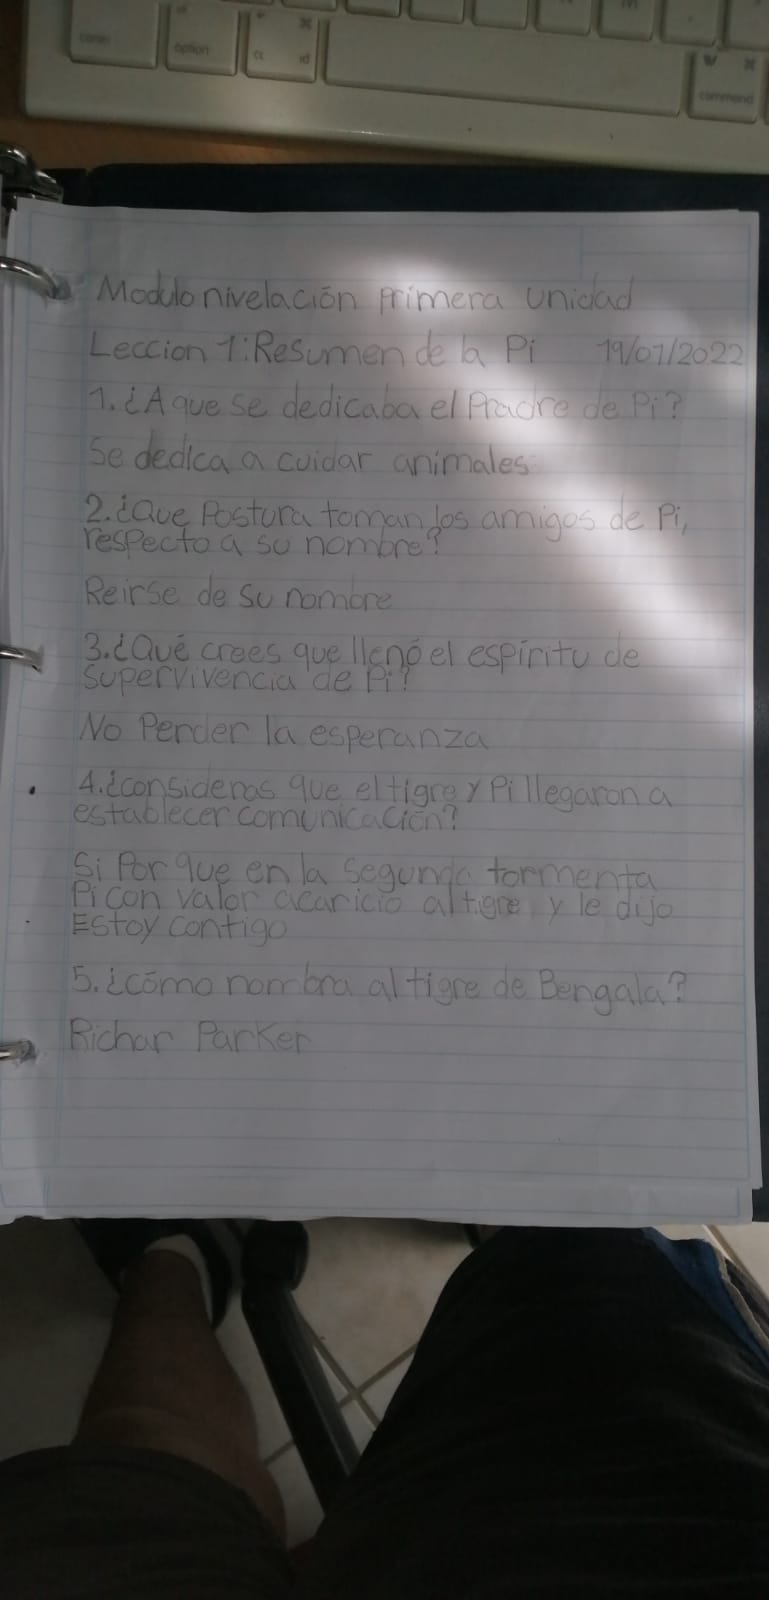 option
command
Modulo nivelación primera unidad
Leccion 1: Resumen de la Pi 19/07/2022
1. ¿A que se dedicaba el Pradre de Pi?
Se dedica a cuidar animales
2. ¿Que Postura toman los amigos de Pi,
respecto a su nombre?
Reirse de su nombre
3. ¿Qué crees que llenó el espíritu de
supervivencia de Pi?
No Perder la esperanza
4. ¿consideras que el tigre y Pi llegaron a
establecer comunicación?
Si Por que en la segunda tormenta
Pi con valor acaricio al tigre y le dijo
Estoy contigo
5. ¿cómo nombra al tigre de Bengala?
Richar Parker